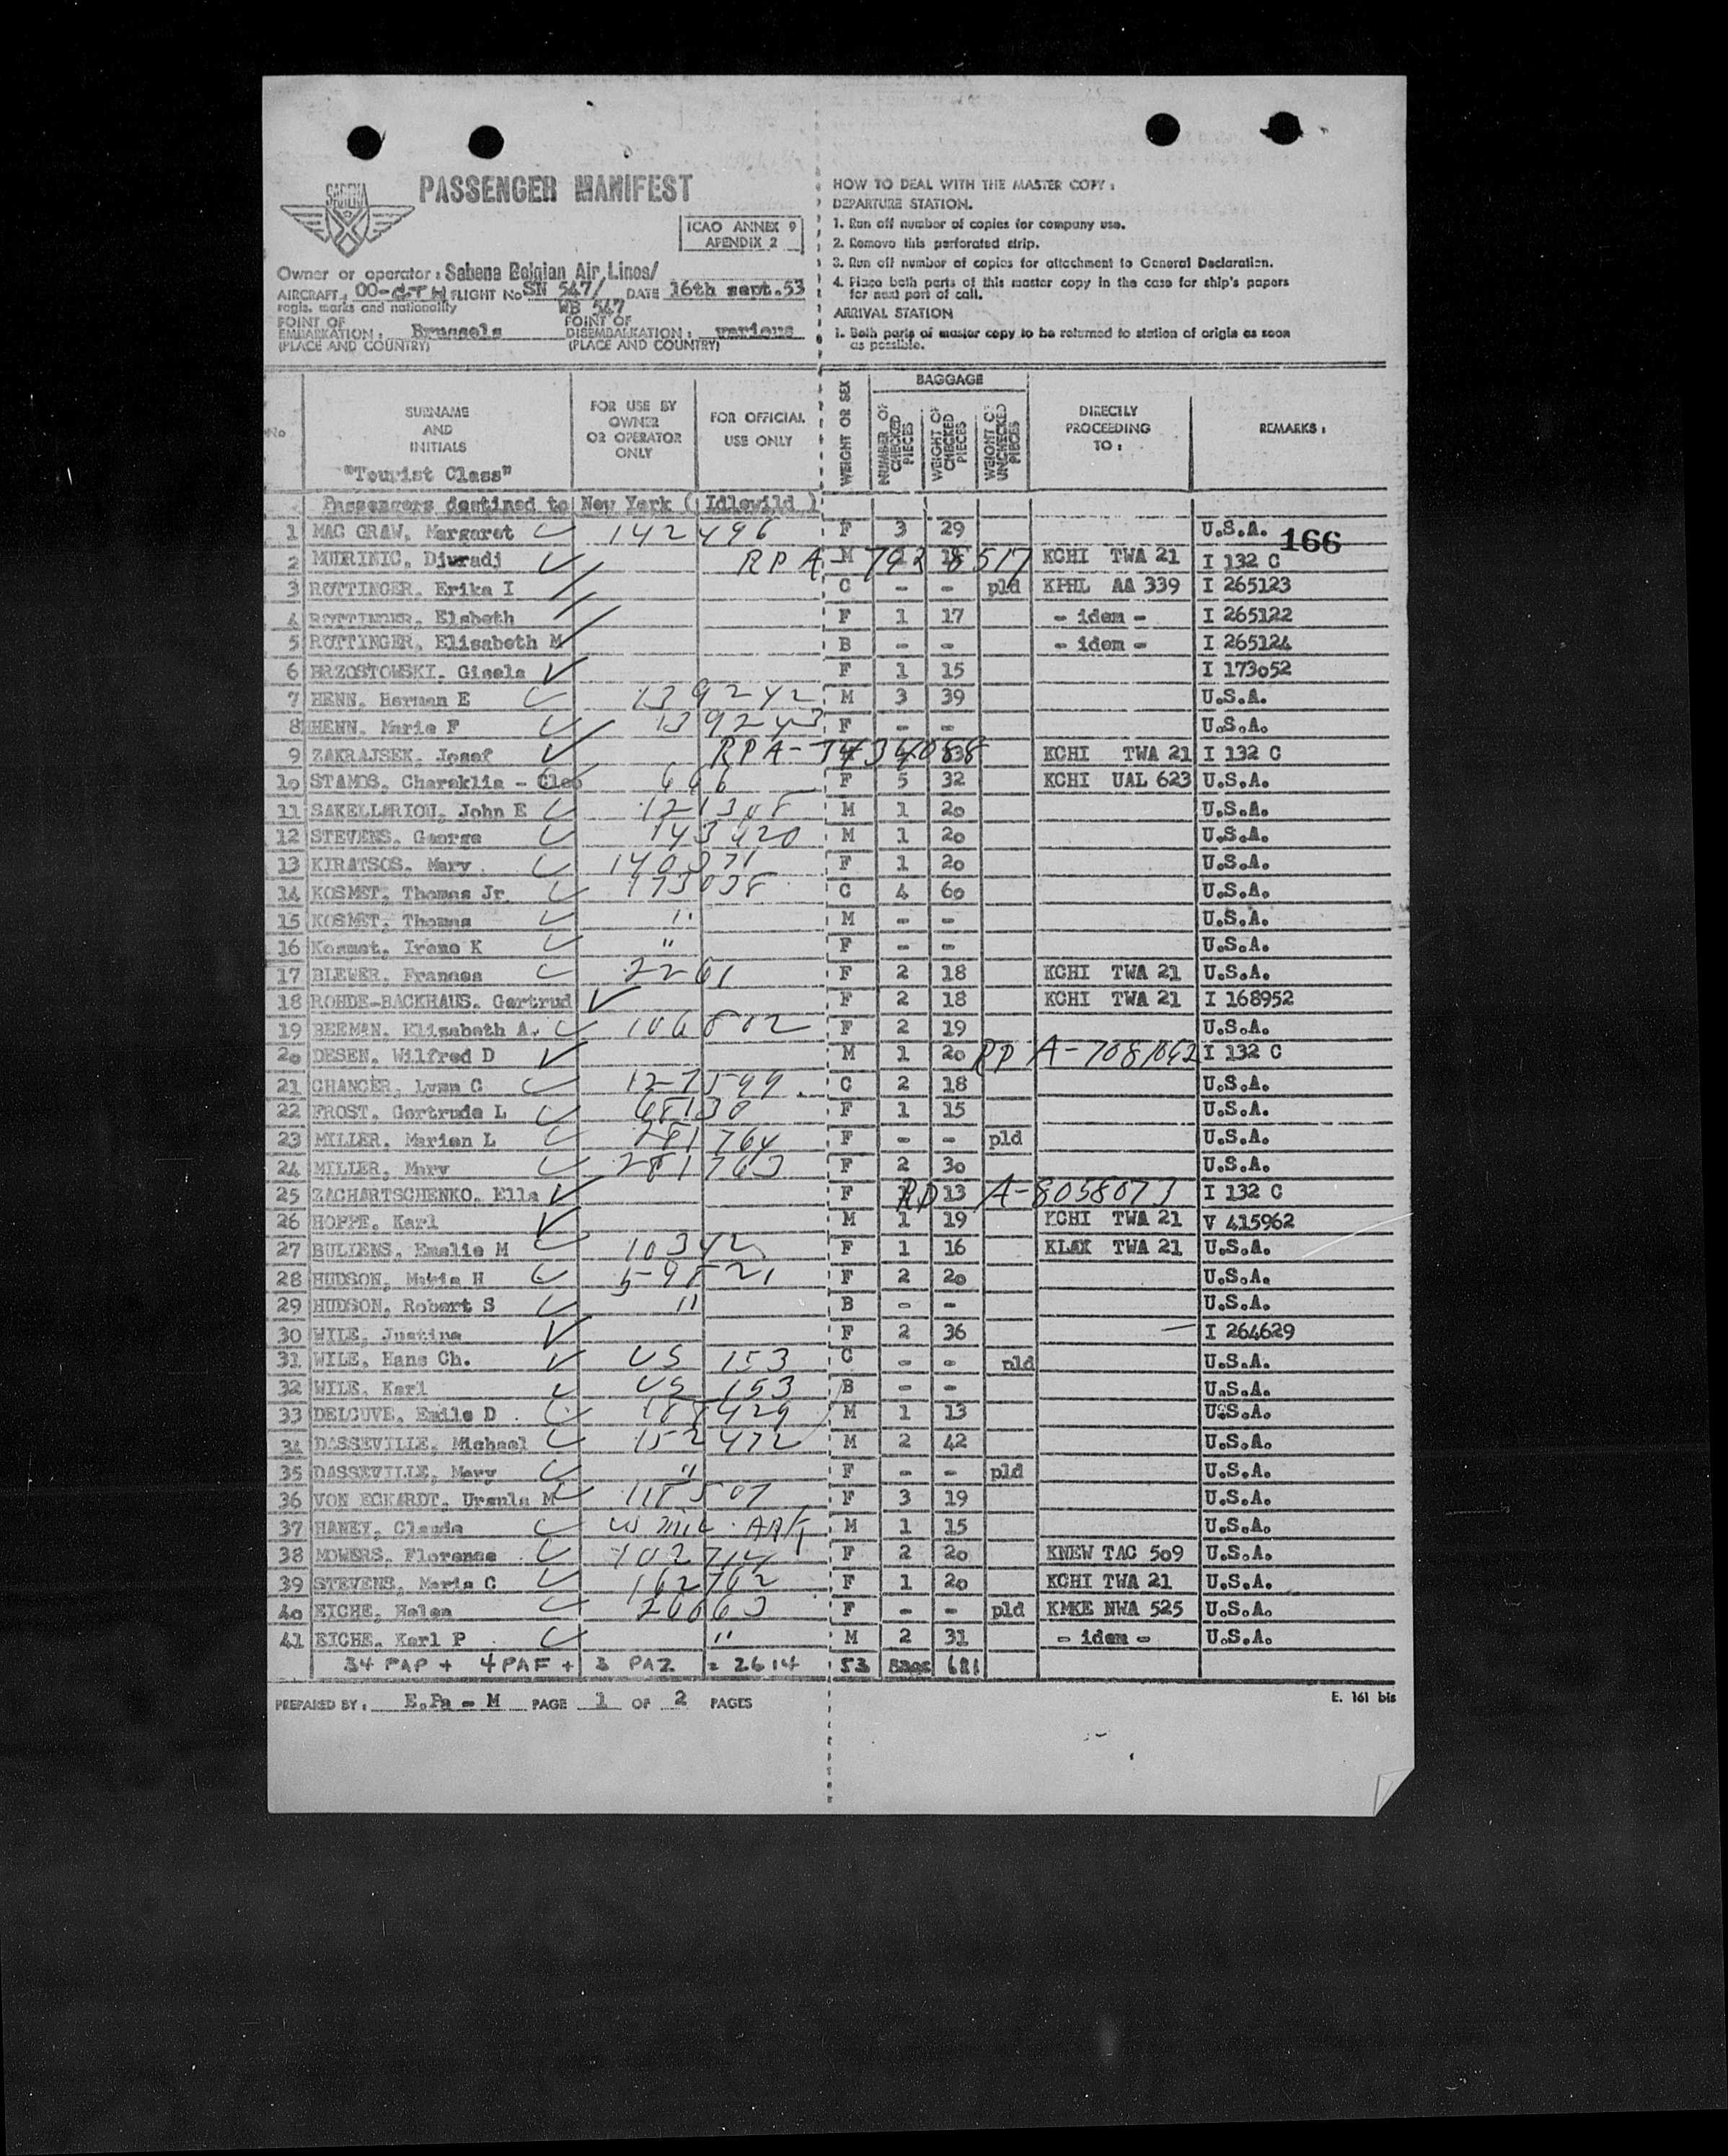 SABENA
PASSENGER MANIFEST
ICAO ANNEX 9
APENDIX 2
Owner or operator : Sabena Belgian Air Lines/
AIRCRAFT : OO- FLIGHT No SN 547/ DATE 16th sept.53
regis. marks and nationality WB 547
POINT OF EMBARKATION : Brussels POINT OF DISEMBALKATION : various
(PLACE AND COUNTRY) (PLACE AND COUNTRY)
HOW TO DEAL WITH THE MASTER COPY :
DEPARTURE STATION.
1. Run off number of copies for company use.
2. Remove this perforated strip.
3. Run off number of copies for attachment to General Declaration.
4. Place both parts of this master copy in the case for ship's papers
for next port of call.
ARRIVAL STATION
1. Both parts of master copy to be returned to station of origin as soon
as possible.
No SURNAME AND INITIALS FOR USE BY OWNER OR OPERATOR ONLY FOR OFFICIAL USE ONLY WEIGHT OR SEX BAGGAGE NUMBER OF CHECKED PIECES WEIGHT OF CHECKED PIECES WEIGHT OF UNCHECKED PIECES DIRECTLY PROCEEDING TO : REMARKS :
"Tourist Class"
Passengers destined to New York ( Idlewild )
1 MAC GRAW, Margaret 142496 F 3 29 U.S.A. 166
2 MUDRINIC, Djuradj RP A-7938517 M KCHI TWA 21 I 132 C
3 ROTTINGER, Erika I C - - pld KPHL AA 339 I 265123
4 ROTTINGER, Elsbeth F 1 17 - idem - I 265122
5 ROTTINGER, Elisabeth M B - - - idem - I 265124
6 BRZOSTOWSKI, Gisela F 1 15 I 173052
7 HENN, Herman E 139242 M 3 39 U.S.A.
8 HENN, Marie F 139243 F - - U.S.A.
9 ZAKRAJSEK, Josef RPA- KCHI TWA 21 I 132 C
10 STAMOS, Charaklia - Cleo 666 F 5 32 KCHI UAL 623 U.S.A.
11 SAKELLARIOU, John E 121308 M 1 20 U.S.A.
12 STEVENS, George 143420 M 1 20 U.S.A.
13 KIRATSOS, Mary 140371 F 1 20 U.S.A.
14 KOSMET, Thomas Jr. 173038 C 4 60 U.S.A.
15 KOSMET, Thomas " M - - U.S.A.
16 Kosmet, Irene K " F - - U.S.A.
17 BLEWER, Frances 2261 F 2 18 KCHI TWA 21 U.S.A.
18 ROHDE-BACKHAUS, Gertrud F 2 18 KCHI TWA 21 I 168952
19 BEEMAN, Elisabeth A. 106802 F 2 19 U.S.A.
20 DESEN, Wilfred D M 1 20 RP A-7081042 I 132 C
21 CHANCER, Lynn C 127599 C 2 18 U.S.A.
22 FROST, Gertrude L 68130 F 1 15 U.S.A.
23 MILLER, Marian L 281764 F - - pld U.S.A.
24 MILLER, Mary 281763 F 2 30 U.S.A.
25 ZACHARTSCHENKO, Ella F RP 13 A-8058073 I 132 C
26 HOPPE, Karl M 1 19 KCHI TWA 21 V 415962
27 BULLENS, Emelie M 10342 F 1 16 KLAX TWA 21 U.S.A.
28 HUDSON, Maria H 59821 F 2 20 U.S.A.
29 HUDSON, Robert S " B - - U.S.A.
30 WILE, Justina F 2 36 I 264629
31 WILE, Hans Ch. US 153 C - - pld U.S.A.
32 WILE, Karl US 153 B - - U.S.A.
33 DELCUVE, Emile D 188429 M 1 13 U.S.A.
34 DASSEVILLE, Michael 152472 M 2 42 U.S.A.
35 DASSEVILLE, Mary " F - - pld U.S.A.
36 VON ECKARDT, Ursula M 118507 F 3 19 U.S.A.
37 HANEY, Claude US Mil. M 1 15 U.S.A.
38 MOWERS, Florence 102714 F 2 20 KNEW TAC 509 U.S.A.
39 STEVENS, Maria C 162762 F 1 20 KCHI TWA 21 U.S.A.
40 EICHE, Helen 26663 F - - pld KMKE NWA 525 U.S.A.
41 EICHE, Karl P " M 2 31 - idem - U.S.A.
34 PAP + 4 PAF + 3 PAZ = 2614 53 Bags 681
PREPARED BY : E.Pa - M PAGE 1 OF 2 PAGES E. 161 bis